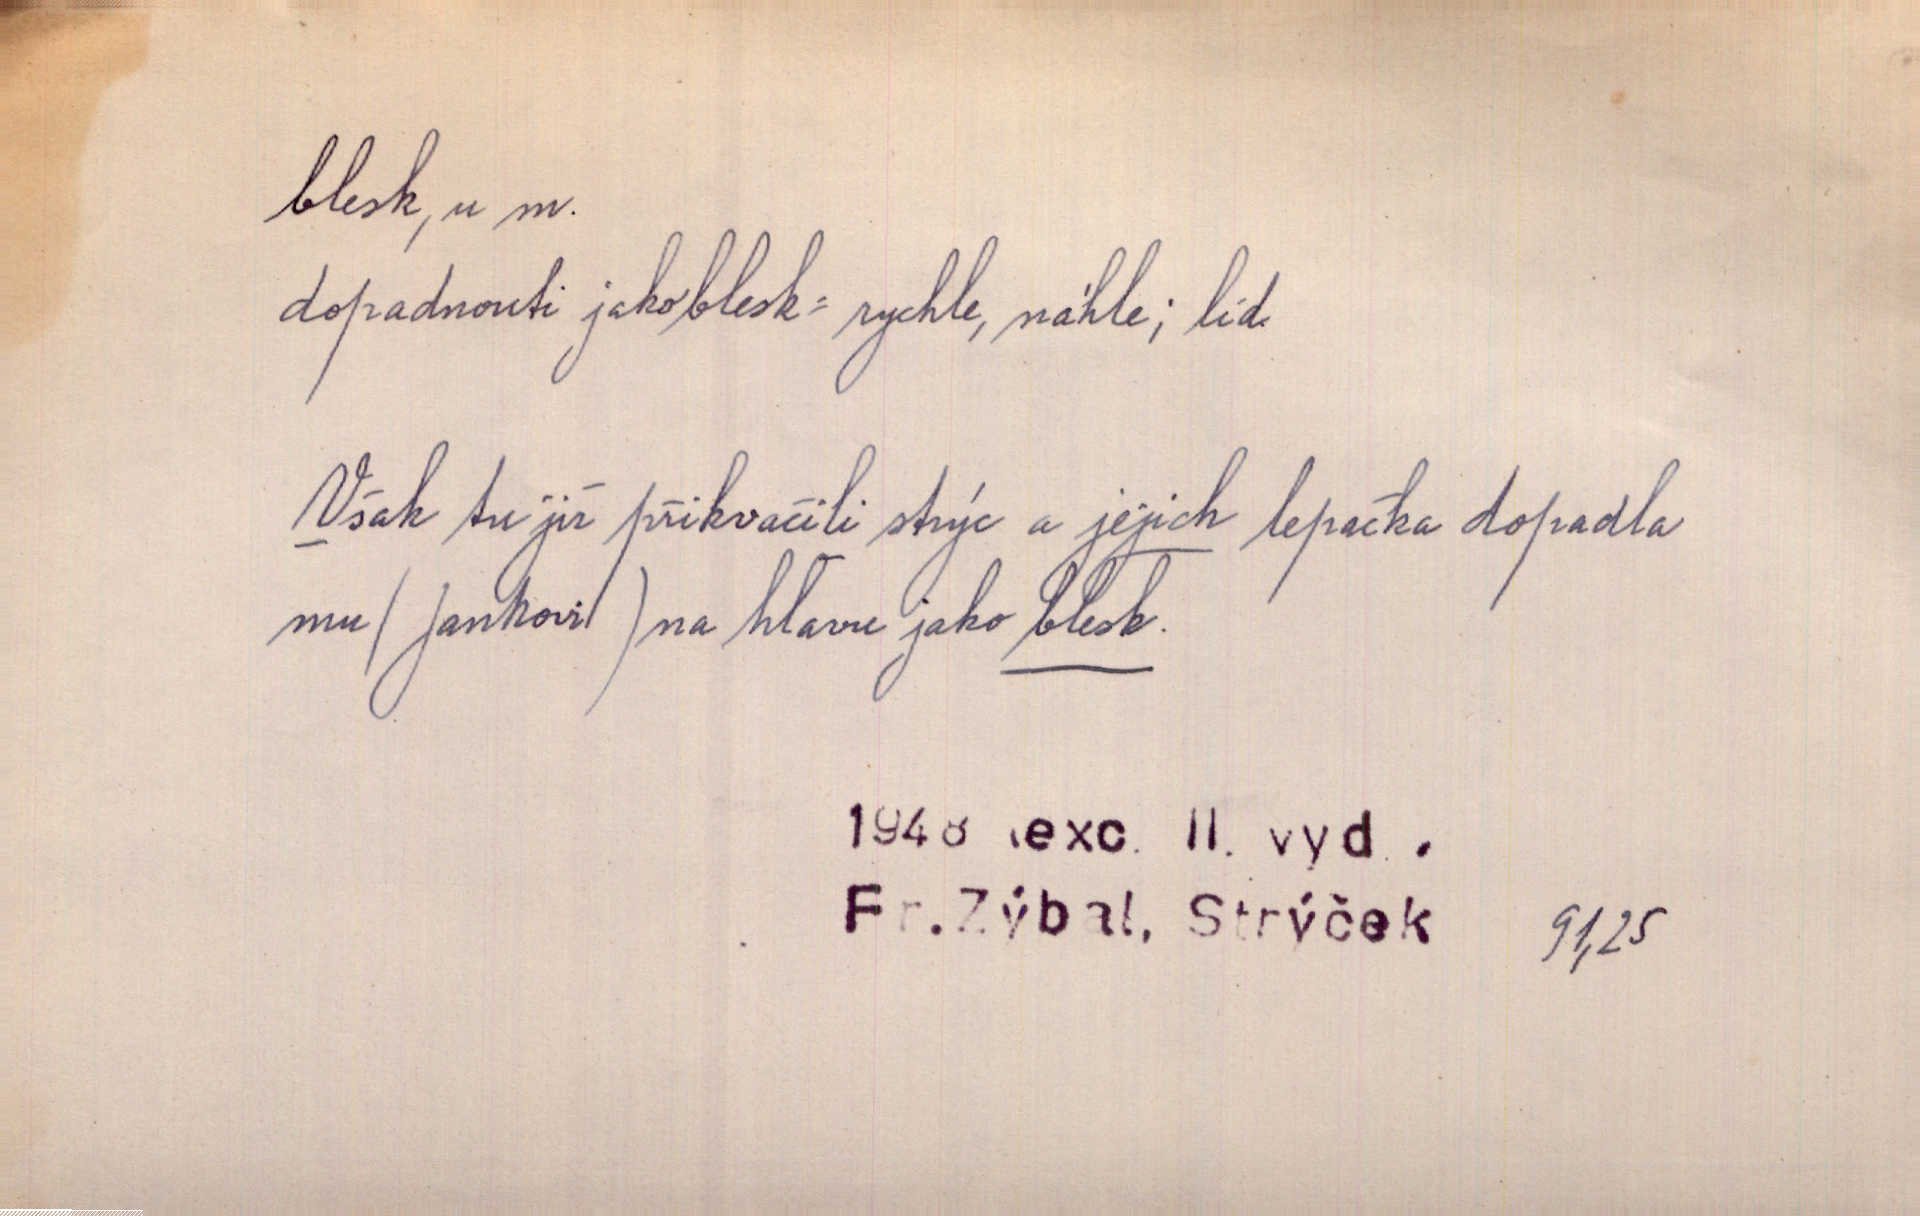 blesk, u m.
dopadnouti jako blesk = rychle, náhle; lid.
Však tu již přikvačili strýc a jejich lepačka dopadla
mu (Jankovi) na hlavu jako blesk.
1948 exc. II. vyd.
Fr. Zýbal, Strýček
91,25